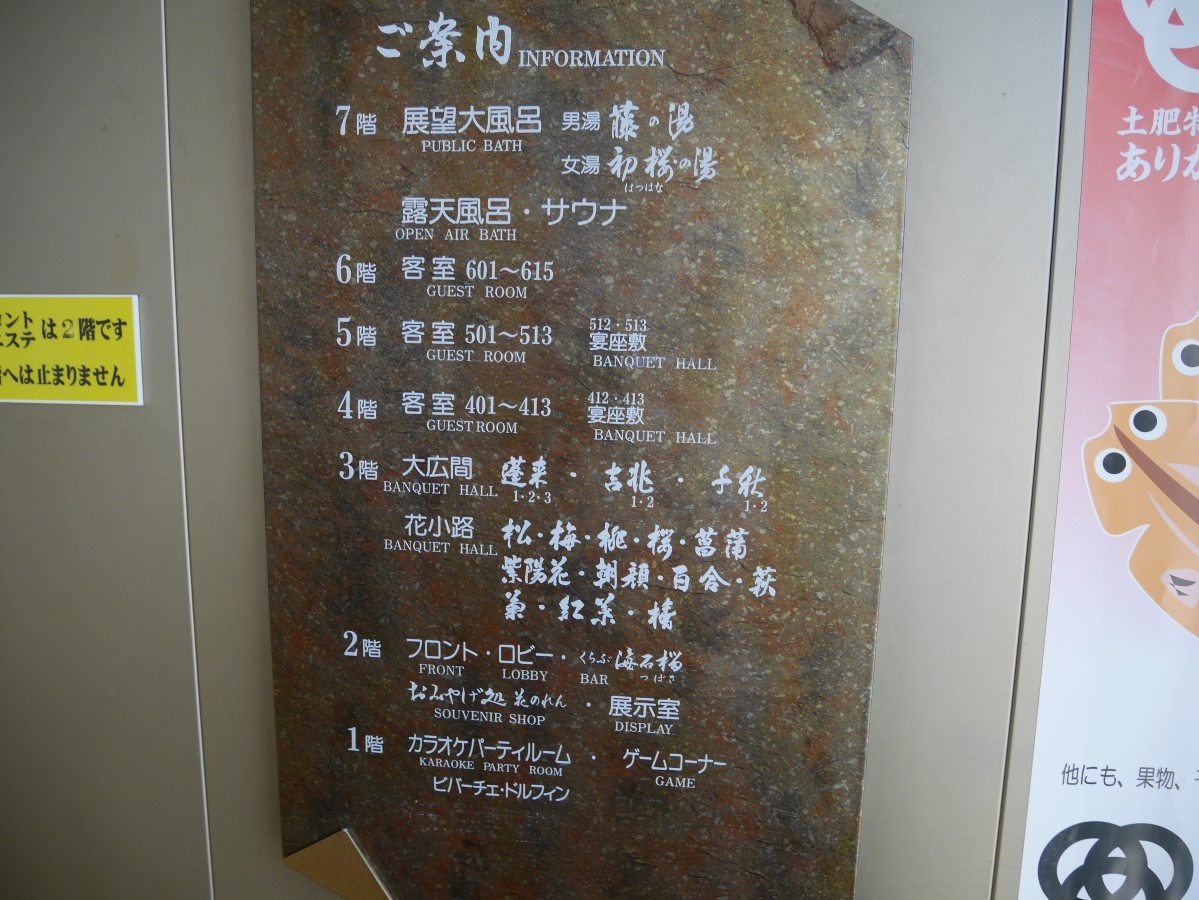 ご案内 INFORMATION
7階 展望大風呂 男湯 藤の湯
PUBLIC BATH
女湯 初桜の湯
はつはな
露天風呂・サウナ
OPEN AIR BATH
6階 客室 601〜615
GUEST ROOM
5階 客室 501〜513 512・513 宴座敷
GUEST ROOM BANQUET HALL
4階 客室 401〜413 412・413 宴座敷
GUEST ROOM BANQUET HALL
3階 大広間 蓬来・吉兆・千秋
BANQUET HALL 1・2・3 1・2 1・2
花小路 松・梅・桃・桜・菖蒲
BANQUET HALL
紫陽花・朝顔・百合・萩
菊・紅葉・椿
2階 フロント・ロビー・くらぶ 海石榴
FRONT LOBBY BAR つばき
おみやげ処 花のれん・展示室
SOUVENIR SHOP DISPLAY
1階 カラオケパーティルーム・ゲームコーナー
KARAOKE PARTY ROOM GAME
ビバーチェ・ドルフィン
ロント
エステ は2階です
階へは止まりません
土肥特
ありが
他にも、果物、